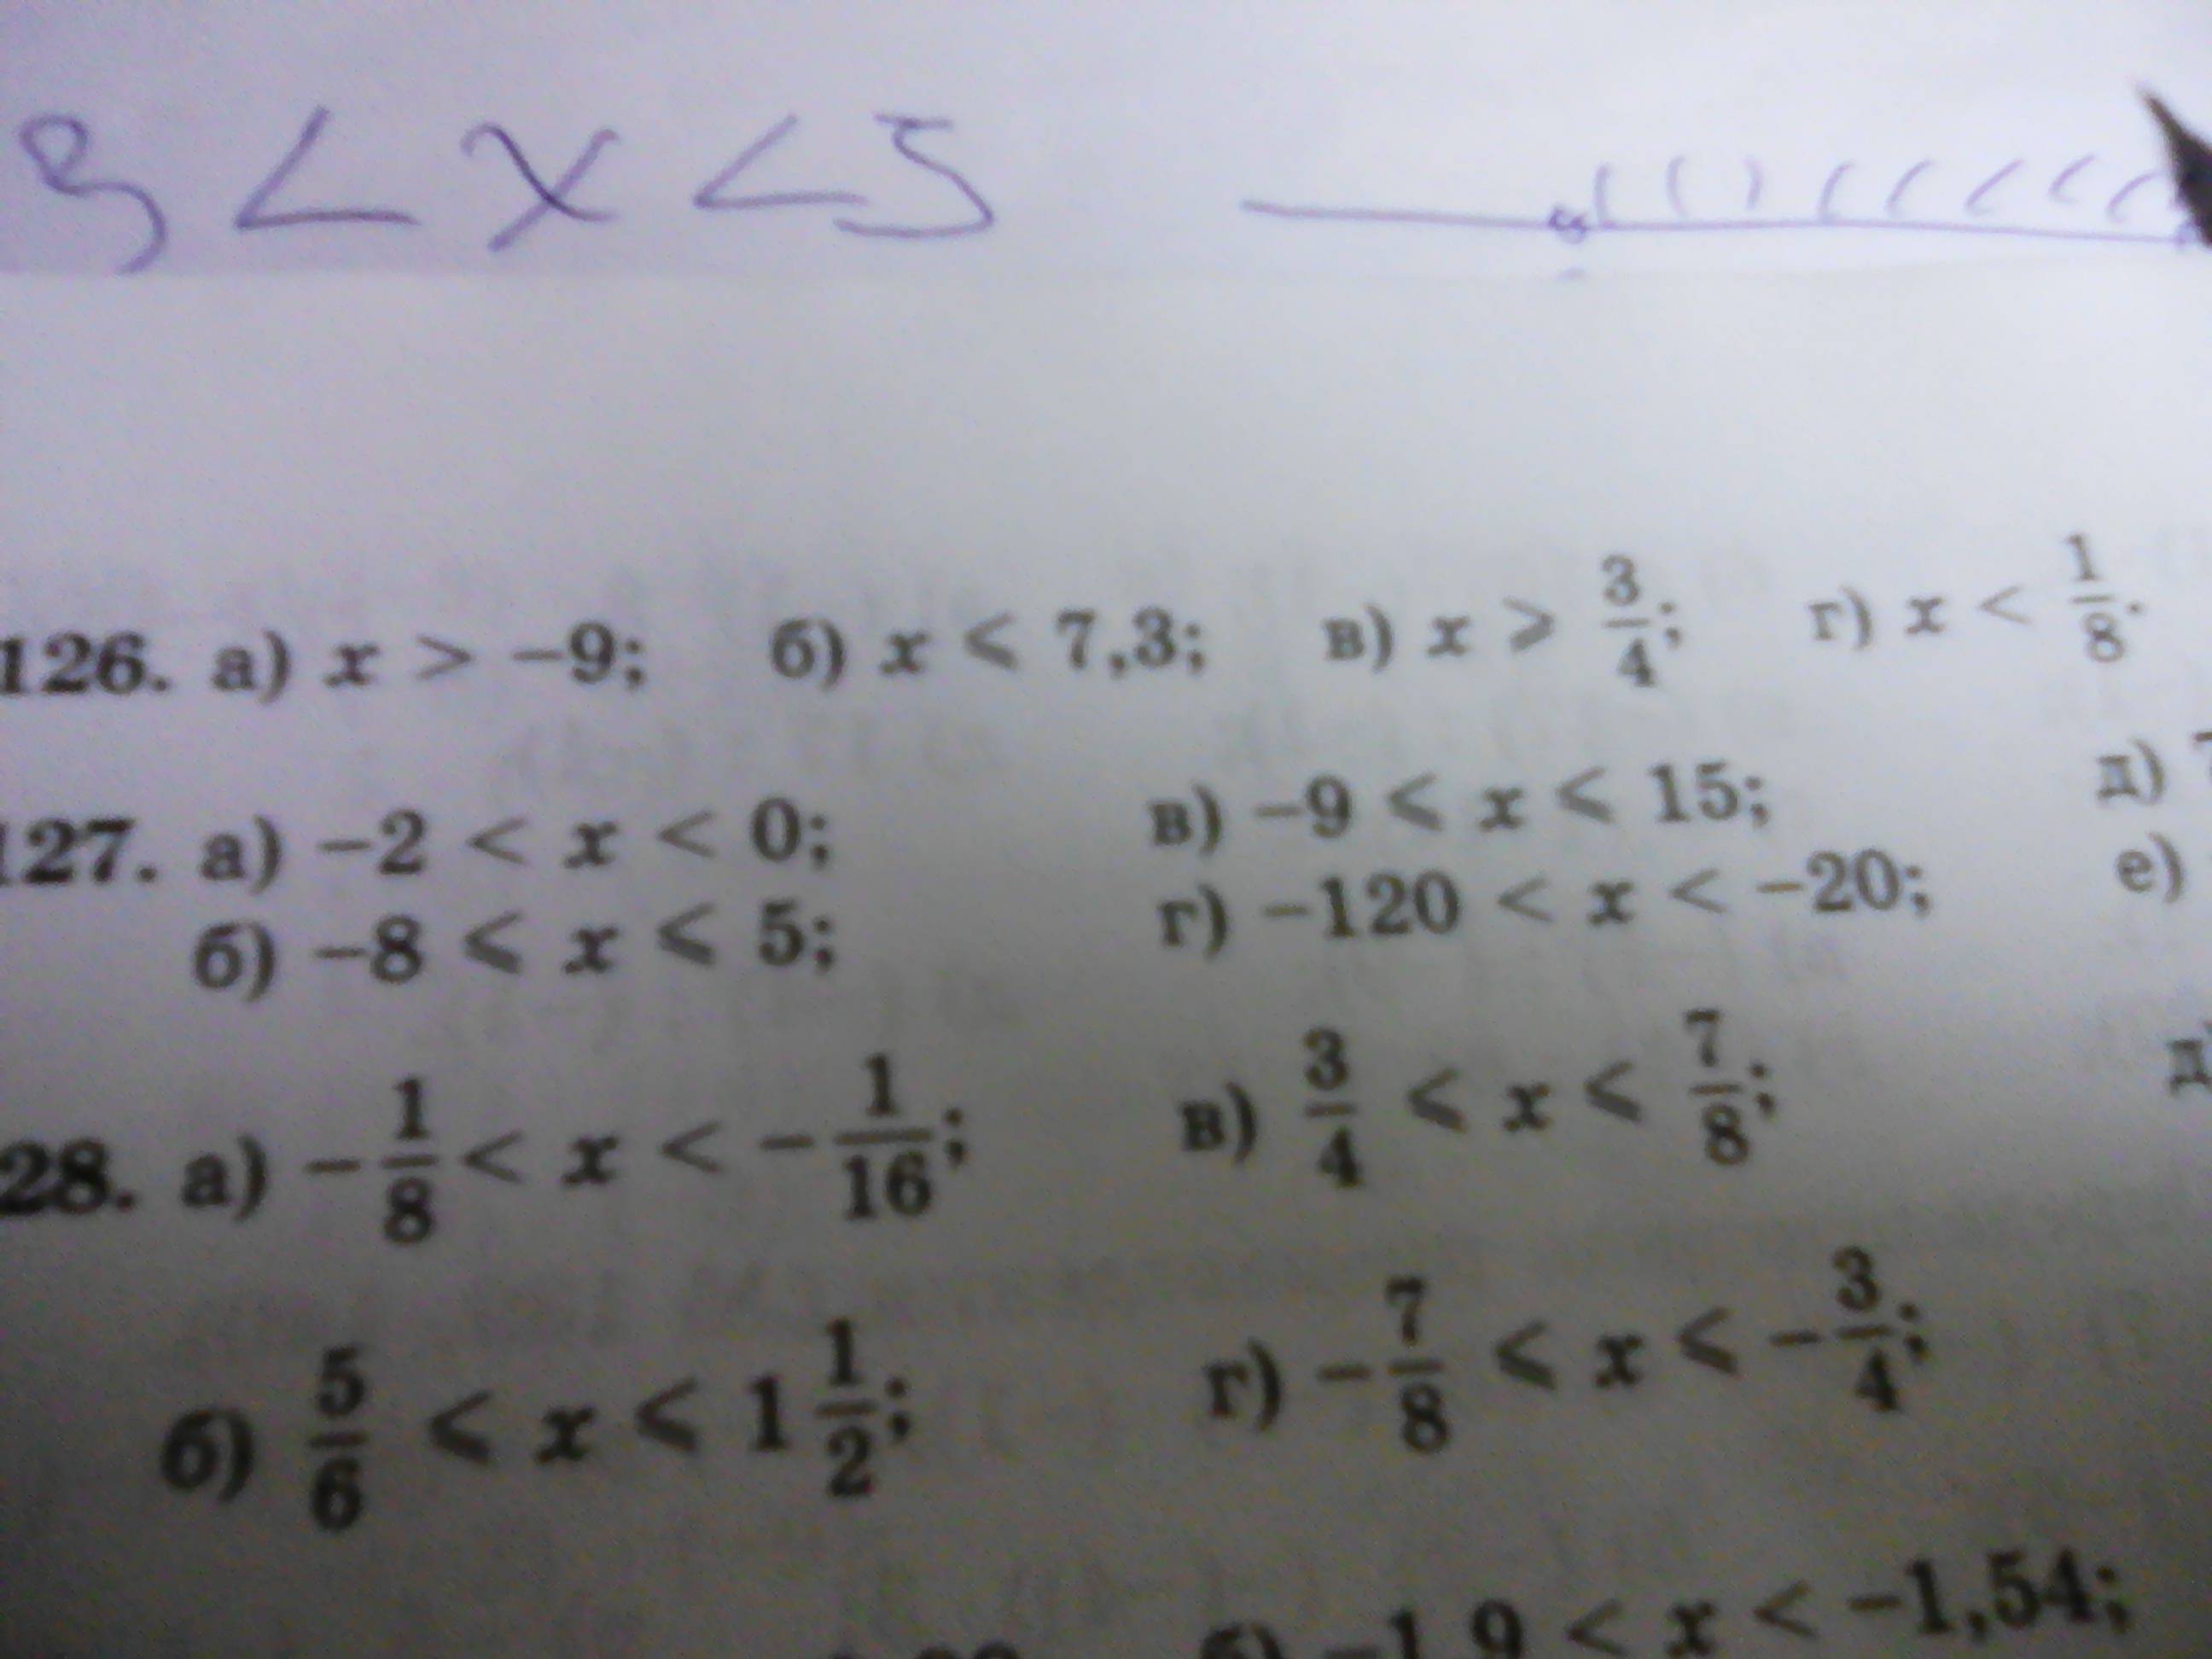 3 < x < 5
126. а) x > −9; б) x ⩽ 7,3; в) x ⩾ 3/4; г) x < 1/8.
127. а) −2 < x < 0; в) −9 ⩽ x ⩽ 15; д)
б) −8 ⩽ x ⩽ 5; г) −120 < x < −20; е)
28. а) −1/8 < x < −1/16; в) 3/4 ⩽ x ⩽ 7/8; д)
б) 5/6 ⩽ x ⩽ 1 1/2; г) −7/8 ⩽ x ⩽ −3/4;
б) −1,9 < x < −1,54;